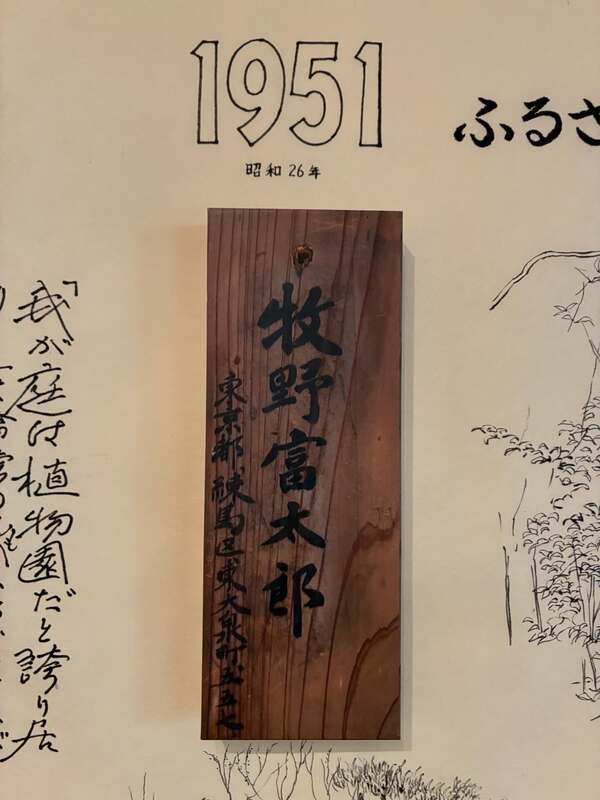 1951
昭和26年
ふるさ
牧野富太郎
東京都練馬区東大泉町五五七
「我が庭は植物園だと誇り居